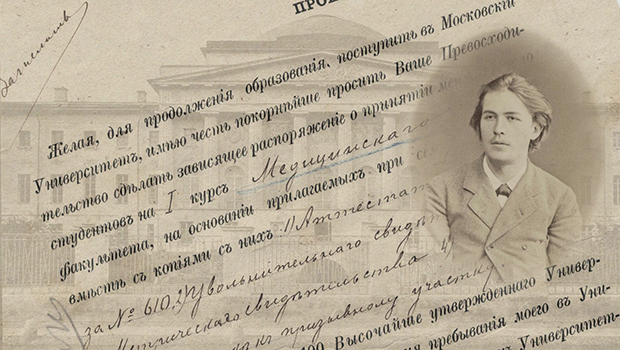 ПРО
Желая, для продолженія образованія, поступить въ Московскій
Университетъ, имѣю честь покорнѣйше просить Ваше Превосходи-
тельство сдѣлать зависящее распоряженіе о принятіи ме
студентовъ на I курсъ Медицинскаго
факультета, на основаніи прилагаемыхъ при с
вмѣстѣ съ копіями съ нихъ 1) Аттестат
за № 610. 2) Увольнительнаго свидѣт
Метрическаго свидѣтельства 4)
къ призывному участку
Высочайше утвержденнаго Универ-
пребыванія моего въ Уни-
Университет-